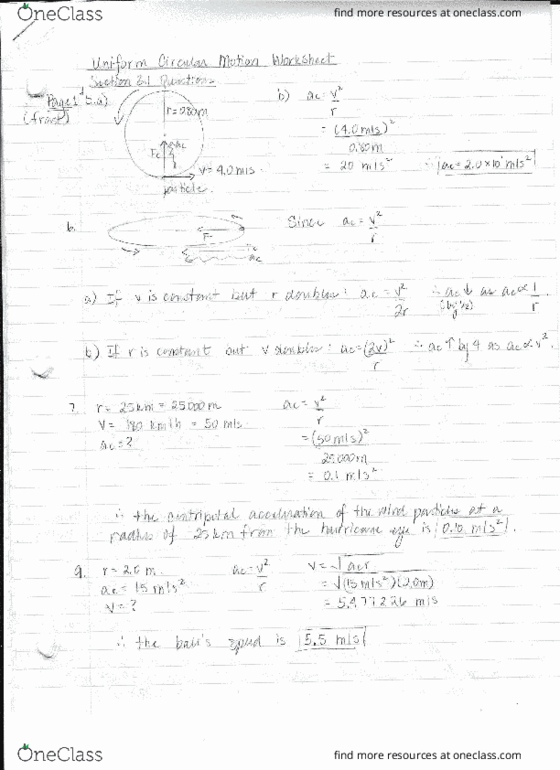 OneClass
find more resources at oneclass.com
Uniform Circular Motion Worksheet
Section 3.1 Questions
Page 1
5. a)
(front)
r = 0.80 m
ac
Fc
v = 4.0 m/s
particle.
b) ac = v²
r
= (4.0 m/s)²
0.80 m
= 20 m/s²
∴ ac = 2.0 × 10¹ m/s²
6.
F
ac
Since ac = v²
r
a) If v is constant but r doubles: ac = v²
2r
∴ ac ↓ as ac ∝ 1
r
(by 1/2)
b) If r is constant but v doubles: ac = (2v)²
r
∴ ac ↑ by 4 as ac ∝ v².
7. r = 25 km = 25 000 m
v = 180 km/h = 50 m/s
ac = ?
ac = v²
r
= (50 m/s)²
25 000 m
= 0.1 m/s²
∴ the centripetal acceleration of the wind particles at a
radius of 25 km from the hurricane eye is 0.10 m/s².
9. r = 2.0 m
ac = 15 m/s²
v = ?
ac = v²
r
v = √ac r
= √(15 m/s²)(2.0 m)
= 5.477226 m/s
∴ the ball's speed is 5.5 m/s
OneClass
find more resources at oneclass.com